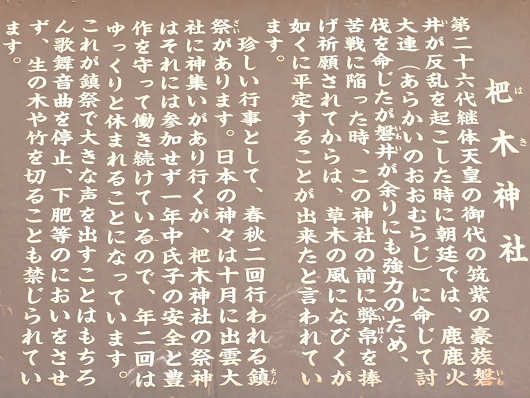 杷木神社
はき
第二十六代継体天皇の御代の筑紫の豪族磐
いわ
井が反乱を起こした時に朝廷では、鹿鹿火
い
大連（あらかいのおおむらじ）に命じて討
伐を命じたが磐井が余りにも強力のため、
いわい
苦戦に陥った時、この神社の前に弊帛を捧
いはく
げ祈願されてからは、草木の風になびくが
如くに平定することが出来たと言われてい
ます。
珍しい行事として、春秋二回行われる鎮
ちん
祭があります。日本の神々は十月に出雲大
さい
社に神集いがあり行くが、杷木神社の祭神
はそれには参加せず一年中氏子の安全と豊
作を守って働き続けているので、年二回は
ゆっくりと休まれることになっています。
これが鎮祭で大きな声を出すことはもちろ
ん歌舞音曲を停止、下肥等のにおいをさせ
ず、生の木や竹を切ることも禁じられてい
ます。